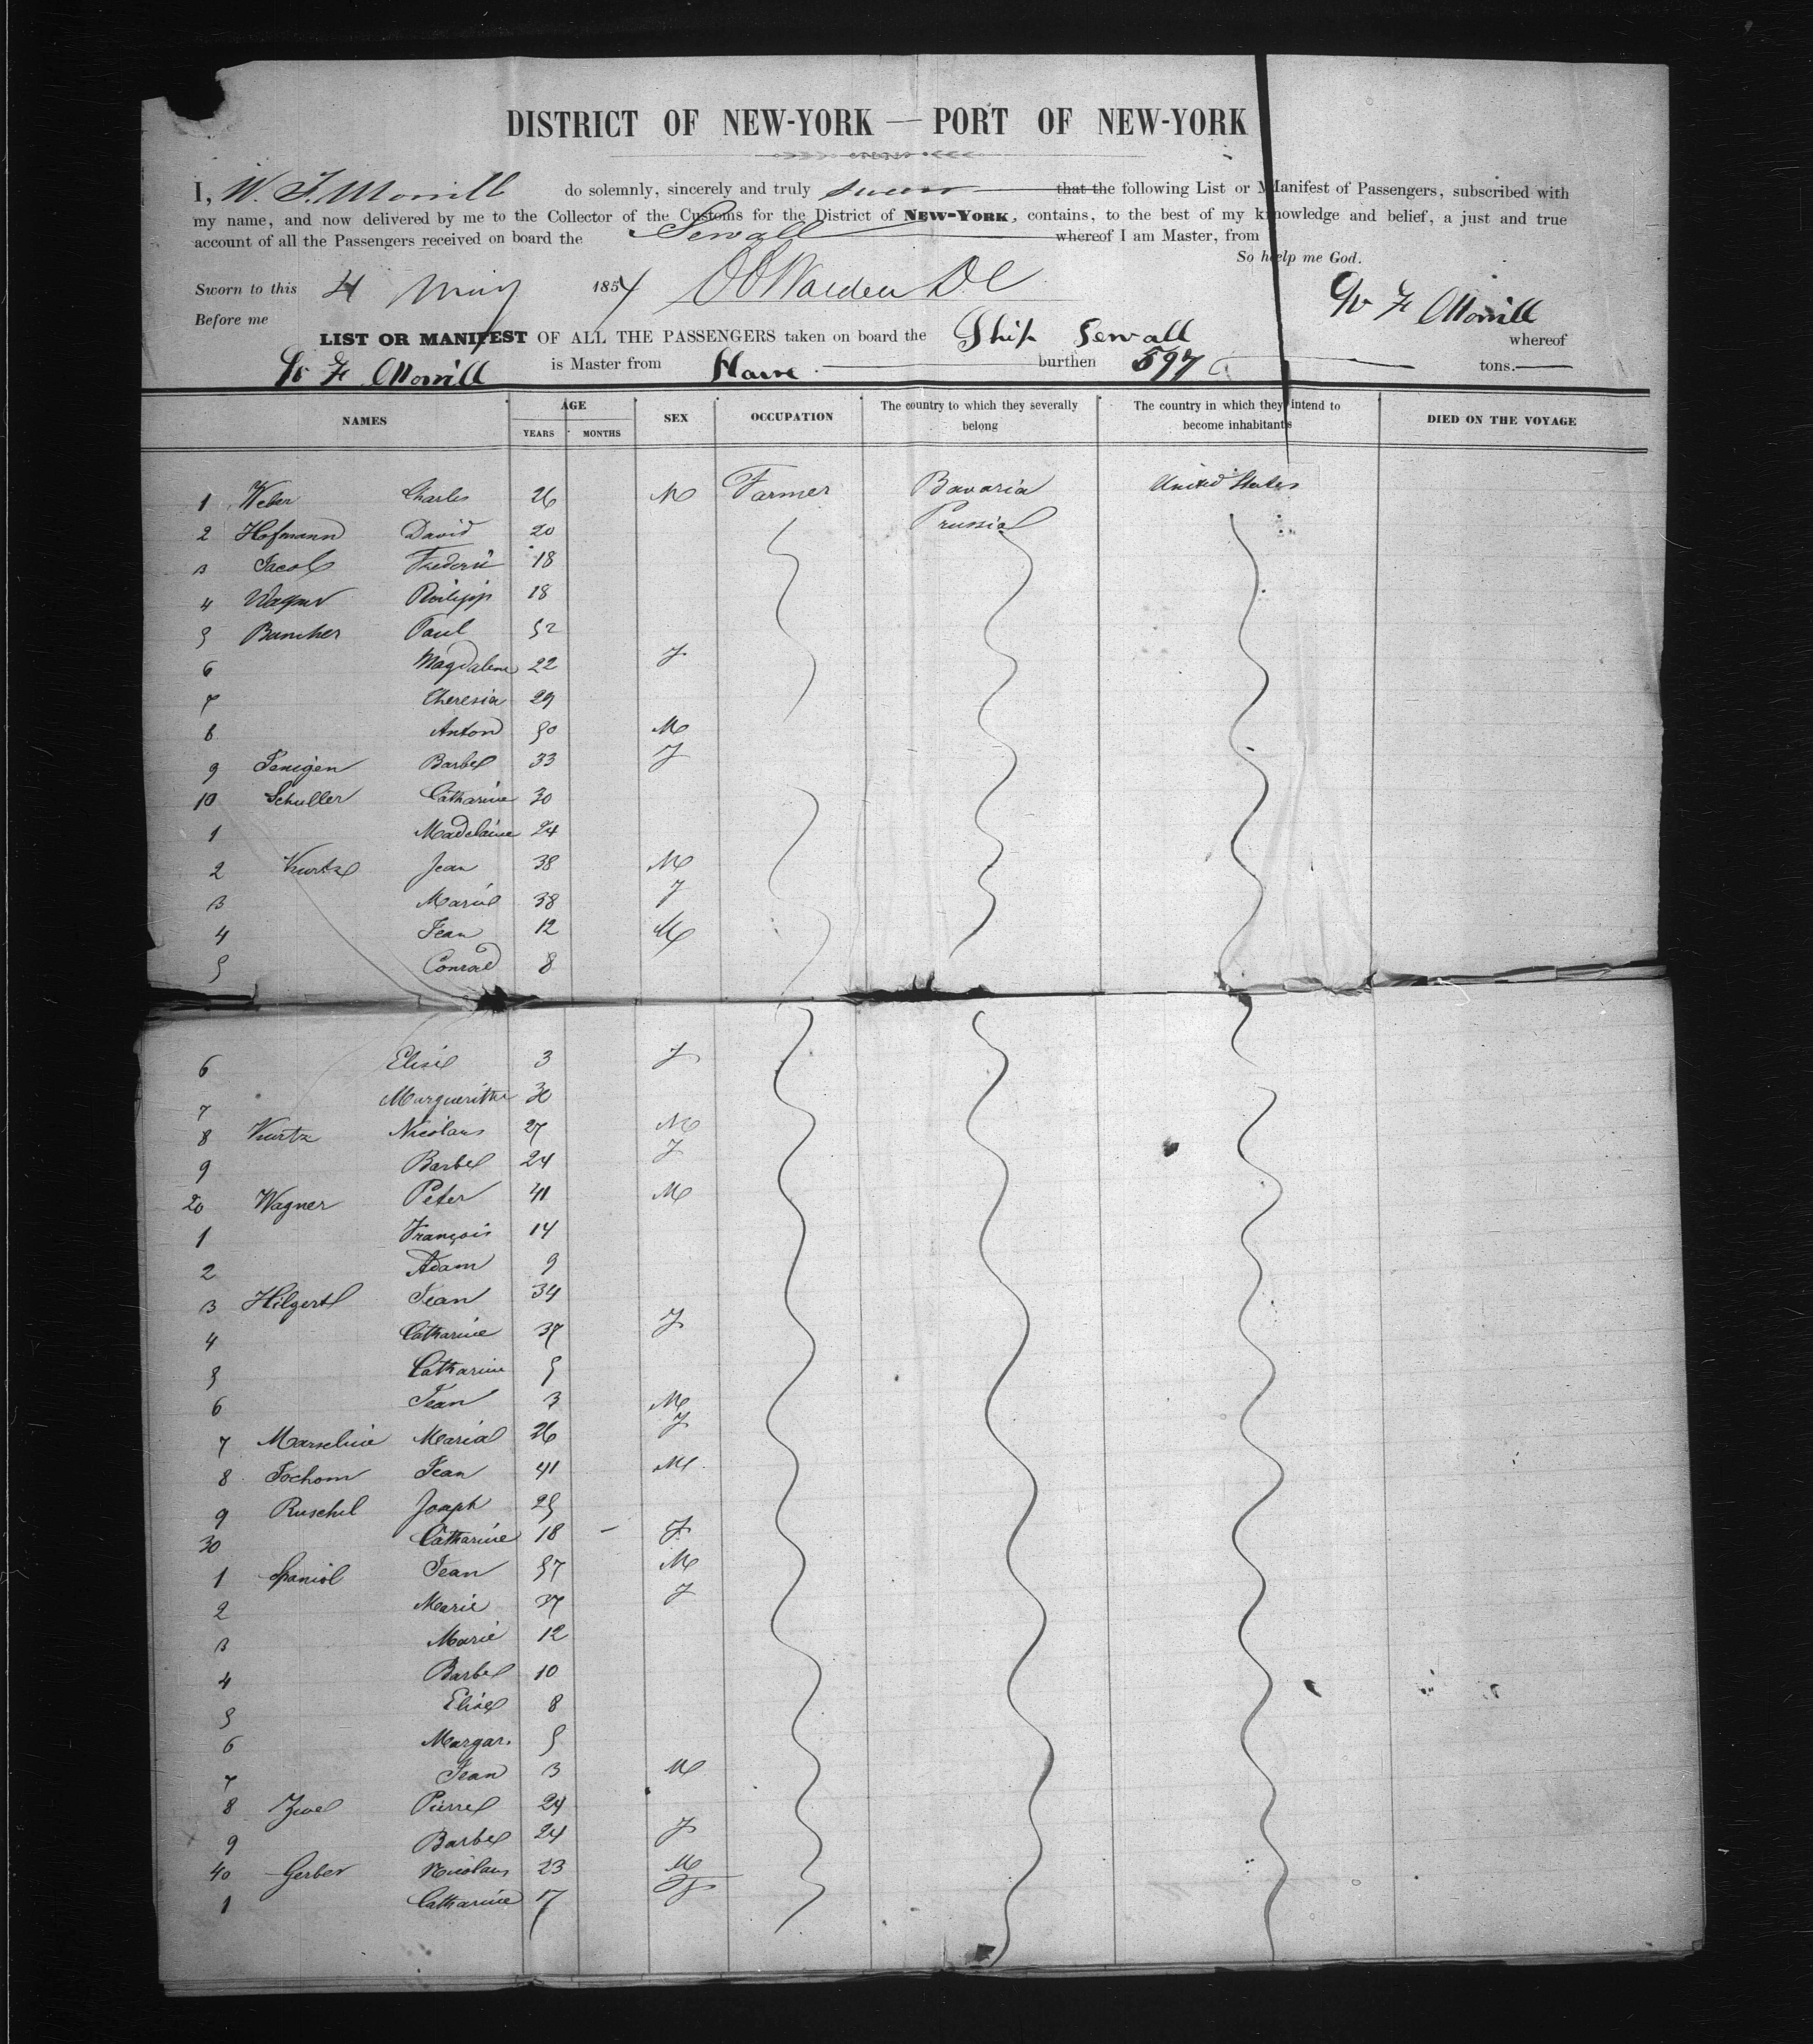 DISTRICT OF NEW-YORK — PORT OF NEW-YORK
I, W. F. Morrill do solemnly, sincerely and truly swear that the following List or Manifest of Passengers, subscribed with
my name, and now delivered by me to the Collector of the Customs for the District of NEW-YORK, contains, to the best of my knowledge and belief, a just and true
account of all the Passengers received on board the Sewall whereof I am Master, from
So help me God.
Sworn to this 4 May 1854 Warden
Before me W F Morrill
LIST OR MANIFEST OF ALL THE PASSENGERS taken on board the Ship Sewall whereof
W F Morrill is Master from Havre burthen 597 tons.
NAMES AGE YEARS MONTHS SEX OCCUPATION The country to which they severally belong The country in which they intend to become inhabitants DIED ON THE VOYAGE
1 Weber Charles 26 M Farmer Bavaria United States
2 Hofmann David 20 Prussia
3 Jacob Frederic 18
4 Wagner Philipp 18
5 Buncher Paul 52
6 Magdalena 22 F
7 Theresia 29
8 Anton 50 M
9 Barbe 33 F
10 Schuller Catharine 30
1 Madelaine 24
2 Kurtz Jean 38 M
3 Marie 38 F
4 Jean 12 M
5 Conrad 8
6 Elise 3 F
7 Margueritha 30
8 Kurtz Nicolaus 27 M
9 Barbe 24 F
20 Wagner Peter 41 M
1 François 14
2 Adam 9
3 Hilgert Jean 34
4 Catharine 37 F
5 Catharine 5
6 Jean 3 M
7 Maria 26 F
8 Jochom Jean 41 M
9 Ruschel Joseph 25
30 Catharine 18 — F
1 Spaniol Jean 57 M
2 Marie 37 F
3 Marie 12
4 Barbe 10
5 Elise 8
6 Margar. 5
7 Jean 3 M
8 Pierre 24
9 Barbe 24 F
40 Gerber Nicolaus 23 M
1 Catharine 17 F